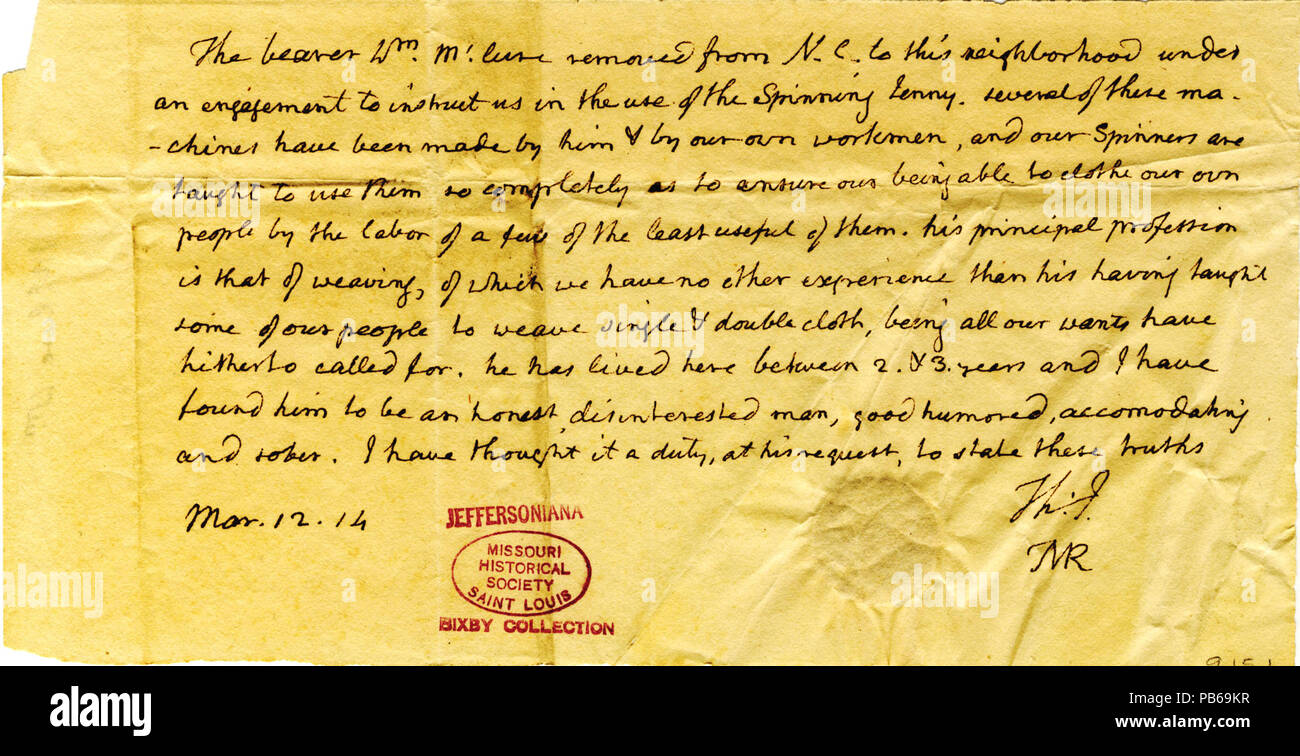 The bearer Wm. Mc.lure removed from N. C. to this neighborhood under
an engagement to instruct us in the use of the Spinning Jenny. several of these ma-
-chines have been made by him & by our own workmen, and our Spinners are
taught to use them so completely as to ensure our being able to clothe our own
people by the labor of a few of the least useful of them. his principal profession
is that of weaving, of which we have no other experience than his having taught
some of our people to weave single & double cloth, being all our wants have
hitherto called for. he has lived here between 2. & 3. years and I have
found him to be an honest, disinterested man, good humored, accomodating
and sober. I have thought it a duty, at his request, to state these truths
Th: J.
Mar. 12. 14
TMR
JEFFERSONIANA
MISSOURI
HISTORICAL
SOCIETY
SAINT LOUIS
BIXBY COLLECTION
alamy
alamy
Image ID: PB69KR
www.alamy.com